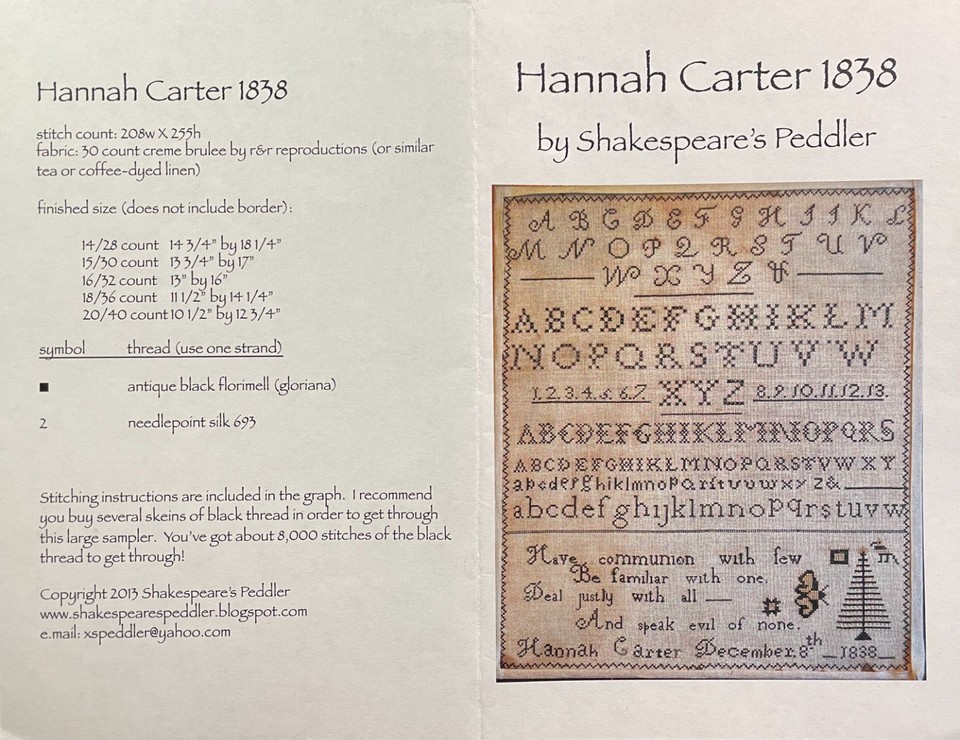 Hannah Carter 1838
stitch count: 208w X 255h
fabric: 30 count creme brulee by r&r reproductions (or similar
tea or coffee-dyed linen)
finished size (does not include border):
14/28 count 14 3/4" by 18 1/4"
15/30 count 13 3/4" by 17"
16/32 count 13" by 16"
18/36 count 11 1/2" by 14 1/4"
20/40 count 10 1/2" by 12 3/4"
symbol thread (use one strand)
■ antique black florimell (gloriana)
2 needlepoint silk 693
Stitching instructions are included in the graph. I recommend
you buy several skeins of black thread in order to get through
this large sampler. You've got about 8,000 stitches of the black
thread to get through!
Copyright 2013 Shakespeare's Peddler
www.shakespearespeddler.blogspot.com
e.mail: xspeddler@yahoo.com
Hannah Carter 1838
by Shakespeare's Peddler
A B C D E F G H I J K L
M N O P Q R S T U V
W X Y Z &
A B C D E F G H I K L M
N O P Q R S T U V W
1.2.3.4.5.6.7. X Y Z 8.9.10.11.12.13.
A B C D E F G H I K L M N O P Q R S
A B C D E F G H I K L M N O P Q R S T V W X Y
a b c d e f g h i k l m n o p q r s t u v w x y z &
a b c d e f g h i j k l m n o p q r s t u v w
Have communion with few
Be familiar with one.
Deal justly with all —
And speak evil of none.
Hannah Carter December.8th 1838